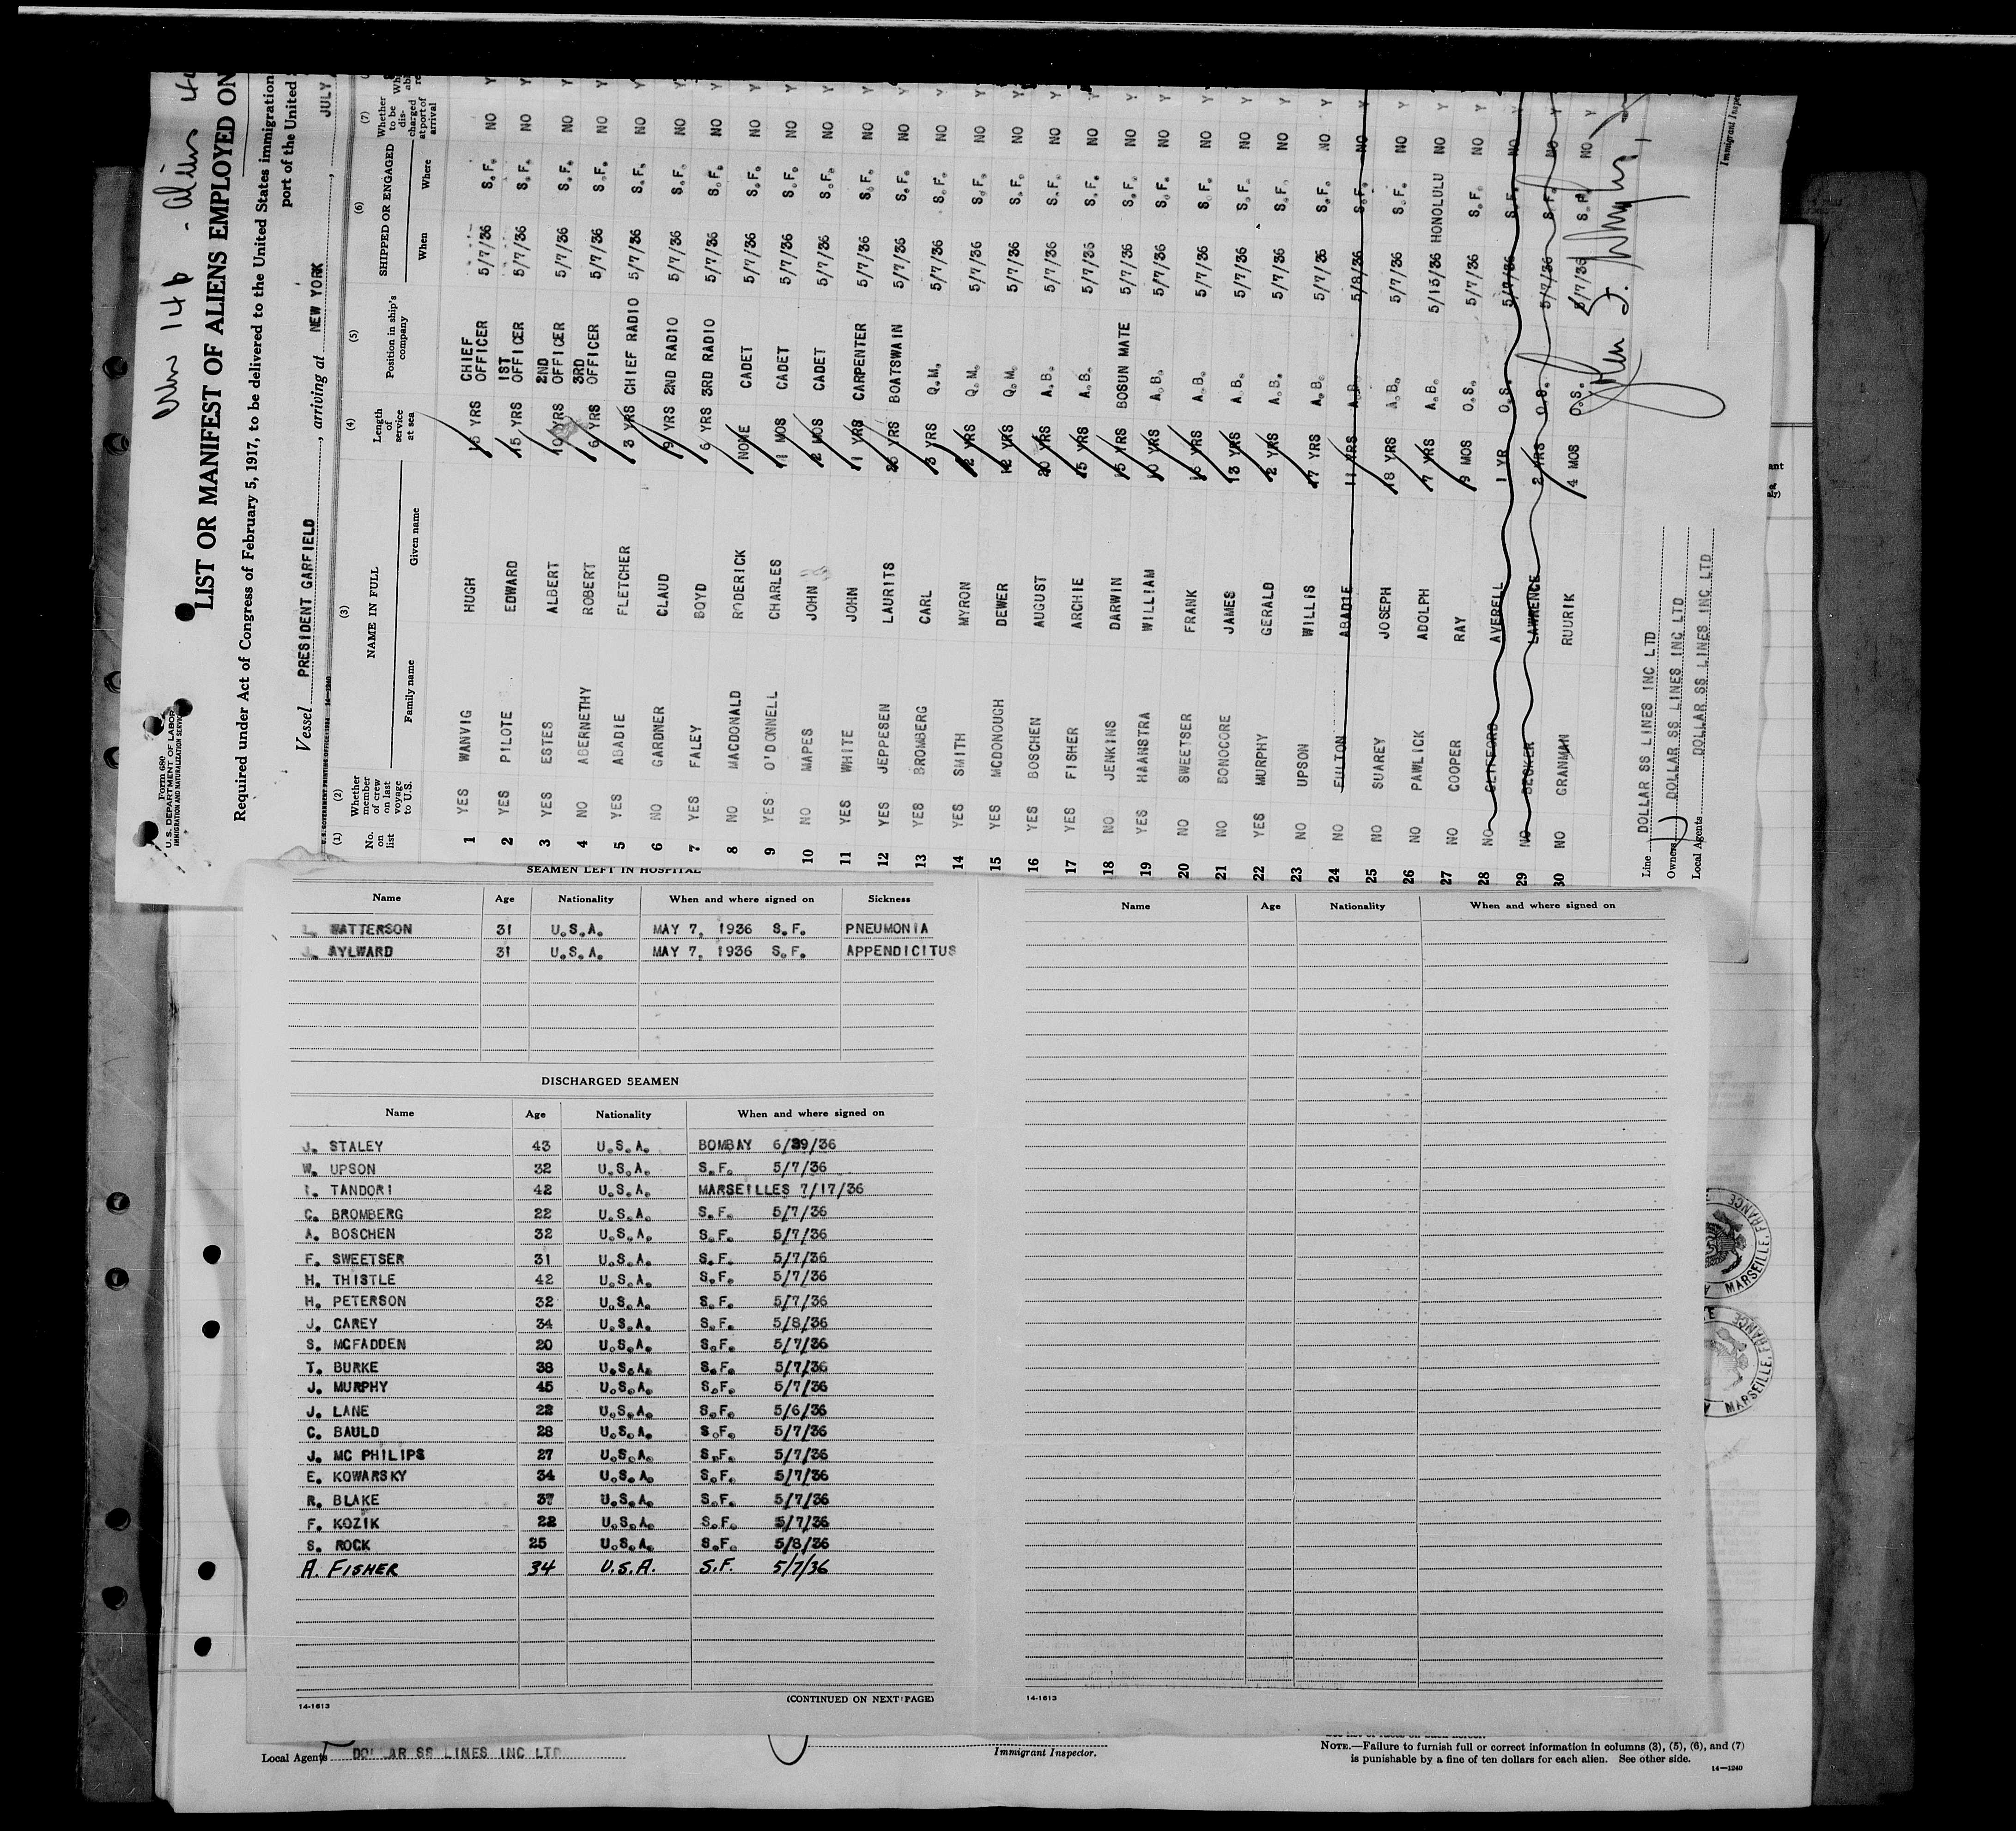 LIST OR MANIFEST OF ALIENS EMPLOYED ON
Form 680
U.S. DEPARTMENT OF LABOR
IMMIGRATION AND NATURALIZATION SERVICE
Required under Act of Congress of February 5, 1917, to be delivered to the United States immigration
port of the United
Vessel PRESIDENT GARFIELD, arriving at NEW YORK, JULY
(1) (2) (3) (4) (5) (6) (7)
No. on list Whether member of crew on last voyage to U.S. NAME IN FULL Length of service at sea Position in ship's company SHIPPED OR ENGAGED Whether to be discharged at port of arrival
Family name Given name When Where
1 YES WANVIG HUGH YRS CHIEF OFFICER 5/7/36 S.F. NO Y
2 YES PILOTE EDWARD 15 YRS 1ST OFFICER 5/7/36 S.F. NO Y
3 YES ESTES ALBERT YRS 2ND OFFICER 5/7/36 S.F. NO Y
4 NO ABERNETHY ROBERT 6 YRS 3RD OFFICER 5/7/36 S.F. NO Y
5 YES ABADIE FLETCHER 3 YRS CHIEF RADIO 5/7/36 S.F. NO Y
6 NO GARDNER CLAUD 9 YRS 2ND RADIO 5/7/36 S.F. NO Y
7 YES FALEY BOYD 6 YRS 3RD RADIO 5/7/36 S.F. NO Y
8 NO MACDONALD RODERICK NONE CADET 5/7/36 S.F. NO Y
9 YES O'DONNELL CHARLES 11 MOS CADET 5/7/36 S.F. NO Y
10 NO MAPES JOHN MOS CADET 5/7/36 S.F. NO Y
11 YES WHITE JOHN YRS CARPENTER 5/7/36 S.F. NO Y
12 YES JEPPESEN LAURITS YRS BOATSWAIN 5/7/36 S.F. NO Y
13 YES BROMBERG CARL 3 YRS Q.M. 5/7/36 S.F. NO Y
14 YES SMITH MYRON 12 YRS Q.M. 5/7/36 S.F. NO Y
15 YES MCDONOUGH DEWER 12 YRS Q.M. 5/7/36 S.F. NO Y
16 YES BOSCHEN AUGUST 20 YRS A.B. 5/7/36 S.F. NO Y
17 YES FISHER ARCHIE 15 YRS A.B. 5/7/36 S.F. NO Y
18 NO JENKINS DARWIN 15 YRS BOSUN MATE 5/7/36 S.F. NO Y
19 YES HAANSTRA WILLIAM 10 YRS A.B. 5/7/36 S.F. NO Y
20 NO SWEETSER FRANK YRS A.B. 5/7/36 S.F. NO Y
21 NO BONOCORE JAMES 13 YRS A.B. 5/7/36 S.F. NO Y
22 YES MURPHY GERALD 2 YRS A.B. 5/7/36 S.F. NO Y
23 NO UPSON WILLIS 17 YRS A.B. 5/7/36 S.F. NO Y
24 NO FULTON ABADIE 11 YRS A.B. 5/8/36 S.F. NO Y
25 NO SUAREY JOSEPH 18 YRS A.B. 5/7/36 S.F. NO Y
26 NO PAWLICK ADOLPH 7 YRS A.B. 5/13/36 HONOLULU NO Y
27 NO COOPER RAY 9 MOS O.S. 5/7/36 S.F. NO Y
28 NO CLIFFORD AVERELL 1 YR O.S. 5/7/36 S.F. NO
29 NO BECKER LAWRENCE 2 YRS O.S. 5/7/36 S.F. NO Y
30 NO GRANMAN RUURIK 4 MOS O.S. 5/7/36 S.F. NO Y
Line DOLLAR SS LINES INC LTD
Owners DOLLAR SS LINES INC LTD
Local Agents DOLLAR SS LINES INC LTD
Immigrant Inspector
SEAMEN LEFT IN HOSPITAL
Name Age Nationality When and where signed on Sickness
L. WATTERSON 31 U.S.A. MAY 7, 1936 S.F. PNEUMONIA
J. AYLWARD 31 U.S.A. MAY 7, 1936 S.F. APPENDICITUS
DISCHARGED SEAMEN
Name Age Nationality When and where signed on
J. STALEY 43 U.S.A. BOMBAY 6/29/36
W. UPSON 32 U.S.A. S.F. 5/7/36
TANDORI 42 U.S.A. MARSEILLES 7/17/36
C. BROMBERG 22 U.S.A. S.F. 5/7/36
A. BOSCHEN 32 U.S.A. S.F. 5/7/36
F. SWEETSER 31 U.S.A. S.F. 5/7/36
H. THISTLE 42 U.S.A. S.F. 5/7/36
H. PETERSON 32 U.S.A. S.F. 5/7/36
J. CAREY 34 U.S.A. S.F. 5/8/36
S. MCFADDEN 20 U.S.A. S.F. 5/7/36
T. BURKE 38 U.S.A. S.F. 5/7/36
J. MURPHY 45 U.S.A. S.F. 5/7/36
J. LANE 22 U.S.A. S.F. 5/6/36
C. BAULD 28 U.S.A. S.F. 5/7/36
J. MC PHILIPS 27 U.S.A. S.F. 5/7/36
E. KOWARSKY 34 U.S.A. S.F. 5/7/36
R. BLAKE 37 U.S.A. S.F. 5/7/36
F. KOZIK 22 U.S.A. S.F. 5/7/36
S. ROCK 25 U.S.A. S.F. 5/8/36
A. FISHER 34 U.S.A. S.F. 5/7/36
14-1613 (CONTINUED ON NEXT PAGE)
Name Age Nationality When and where signed on
14-1613
MARSEILLE, FRANCE
MARSEILLE, FRANCE
Local Agents DOLLAR SS LINES INC LTD
Immigrant Inspector.
NOTE.—Failure to furnish full or correct information in columns (3), (5), (6), and (7)
is punishable by a fine of ten dollars for each alien. See other side.
14—1240